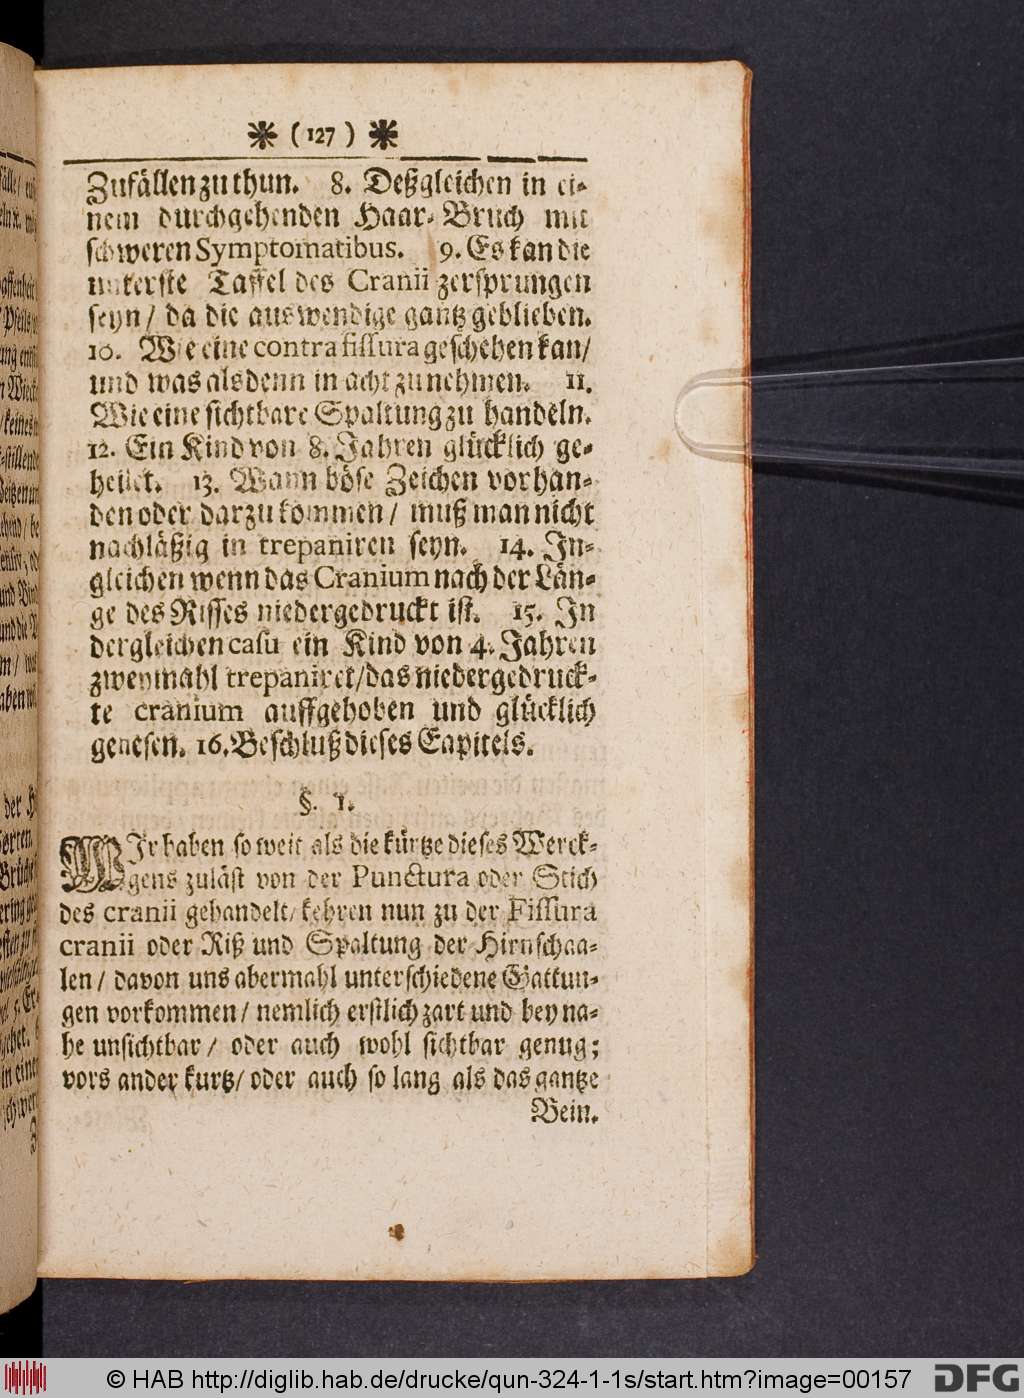 ( 127 )
Zufällen zu thun. 8. Deßgleichen in ei-
nem durchgehenden Haar-Bruch mit
schweren Symptomatibus. 9. Es kan die
unterste Taffel des Cranii zersprungen
seyn / da die auswendige gantz geblieben.
10. Wie eine contra fissura geschehen kan /
und was alsdenn in acht zu nehmen. 11.
Wie eine sichtbare Spaltung zu handeln.
12. Ein Kind von 8. Jahren glücklich ge-
heilet. 13. Wann böse Zeichen vorhan-
den oder darzu kommen / muß man nicht
nachläßig in trepaniren seyn. 14. In-
gleichen wenn das Cranium nach der Län-
ge des Risses niedergedruckt ist. 15. In
dergleichen casu ein Kind von 4. Jahren
zweymahl trepaniret / das niedergedruck-
te cranium auffgehoben und glücklich
genesen. 16. Beschluß dieses Capitels.
§. 1.
WIr haben so weit als die kürtze dieses Werck-
gens zuläst von der Punctura oder Stich
des cranii gehandelt / kehren nun zu der Fissura
cranii oder Riß und Spaltung der Hirnschaa-
len / davon uns abermahl unterschiedene Gattun-
gen vorkommen / nemlich erstlich zart und bey na-
he unsichtbar / oder auch wohl sichtbar genug;
vors ander kurtz / oder auch so lang als das gantze
Bein.
© HAB http://diglib.hab.de/drucke/qun-324-1-1s/start.htm?image=00157
DFG